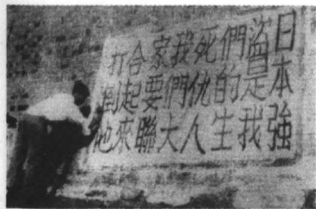 日本強
盜是我
們的生
死仇人
我們大
家要聯
合起來
打倒他